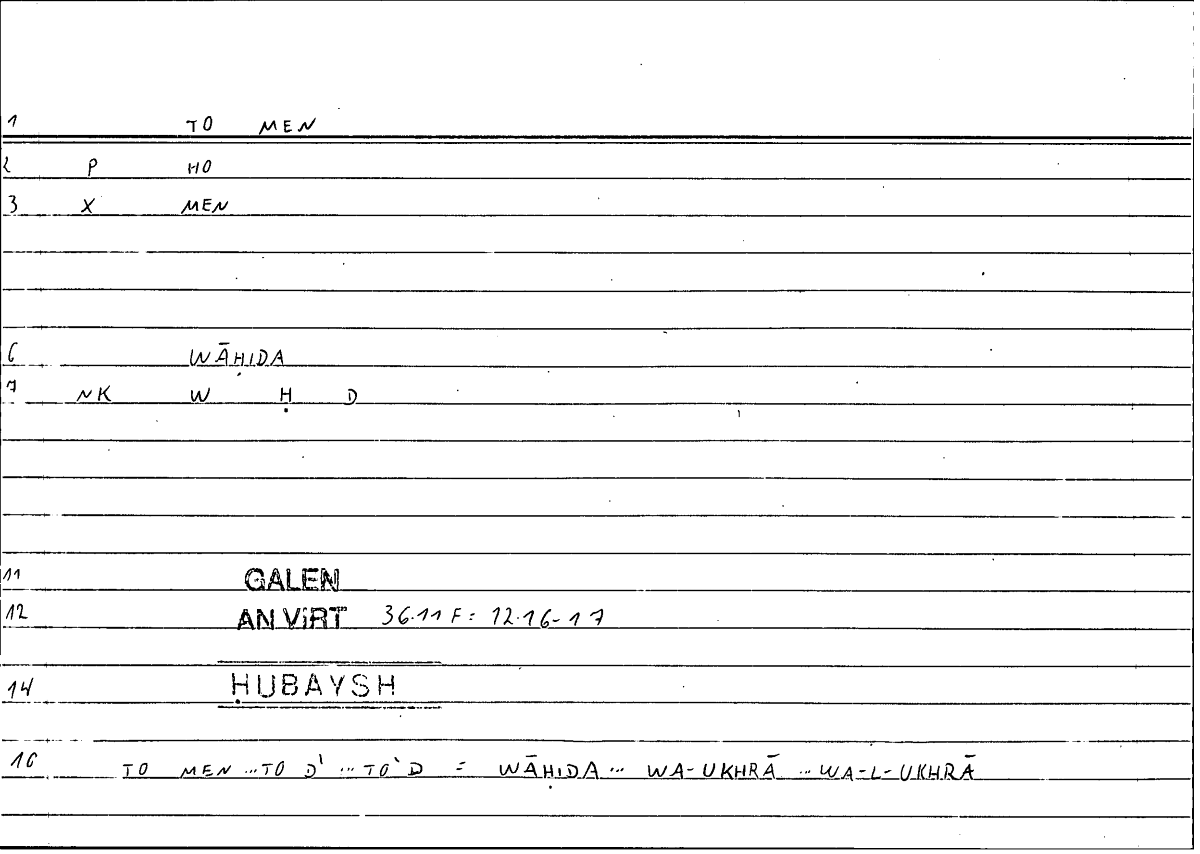 1 TO MEN
2 P HO
3 X MEN
6 WĀḤIDA
7 NK W Ḥ D
11 GALEN
12 AN VIRT 36.11 F = 12.16-17
14 ḤUBAYSH
16 TO MEN ... TO D' ... TO D = WĀḤIDA ... WA-UKHRĀ ... WA-L-UKHRĀ